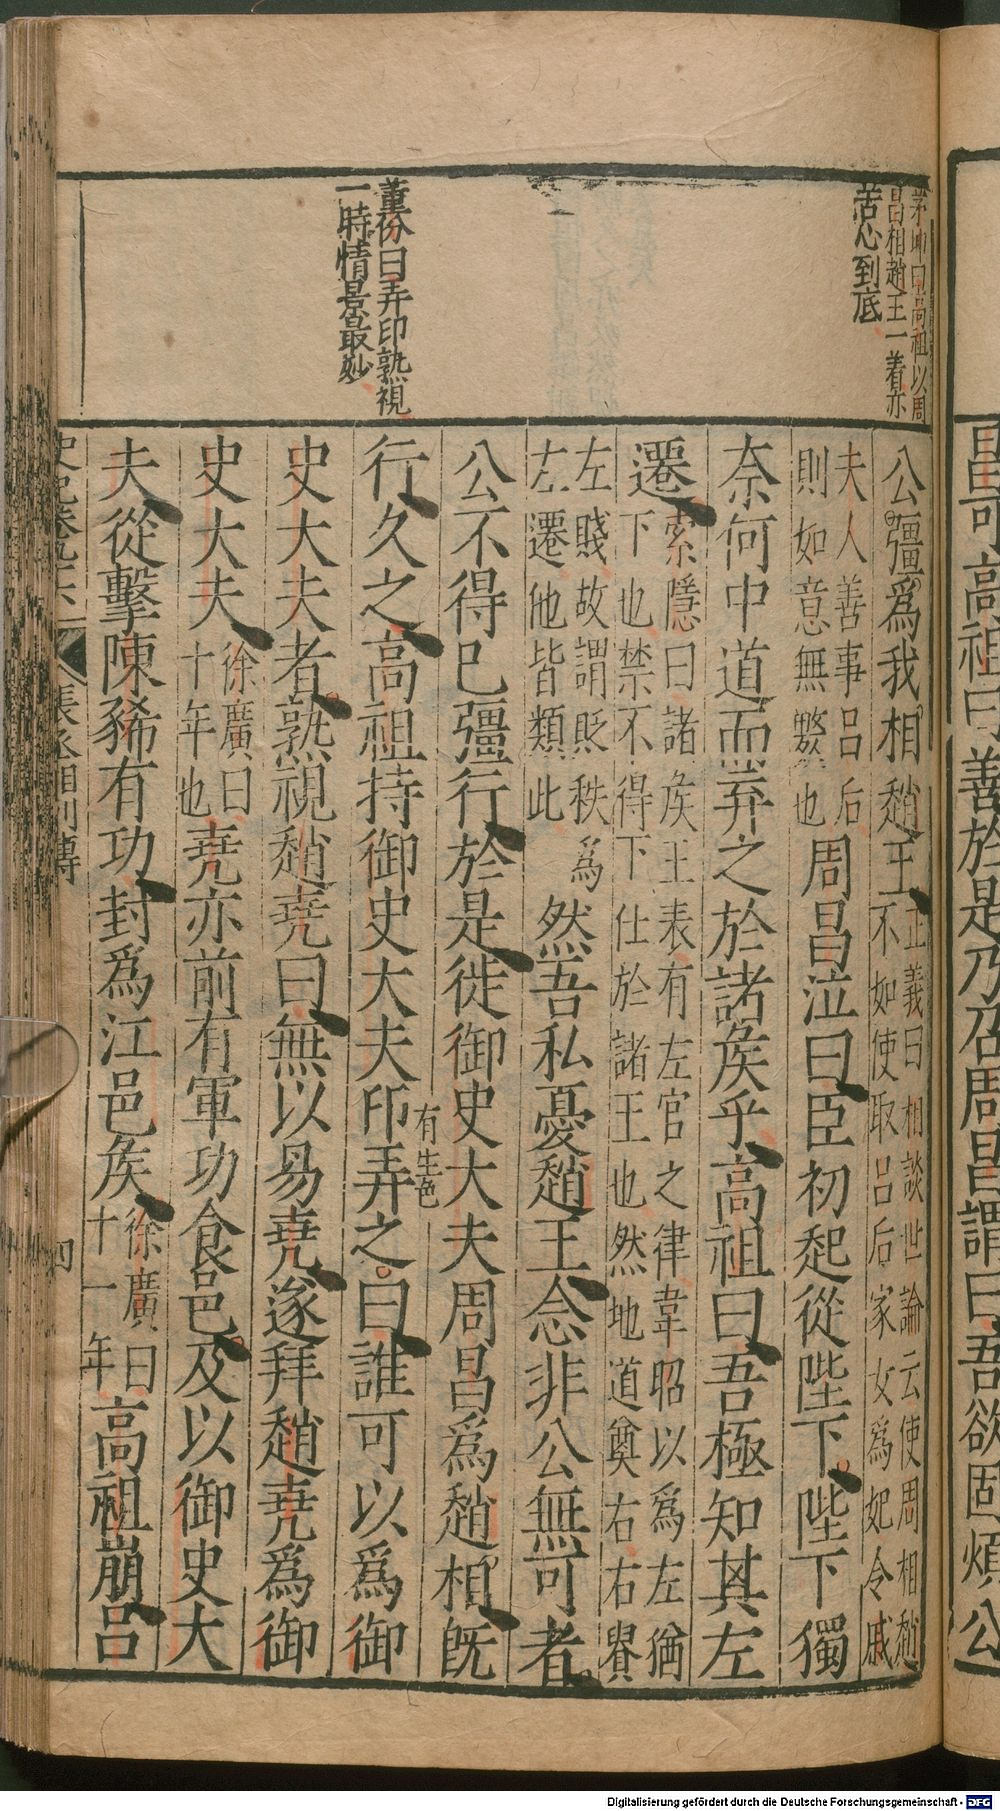 昌可高祖曰善於是乃召周昌謂曰吾欲固煩公
茅坤曰高祖以周
昌相趙王一着亦
苦心到底
董份曰弄印熟視
一時情景最妙
公彊爲我相趙王正義曰相談世論云使周相趙
不如使取吕后家女爲妃令戚
夫人善事吕后
則如意無斃也周昌泣曰臣初起從陛下陛下獨
奈何中道而棄之於諸矦乎高祖曰吾極知其左
遷索隱曰諸矦王表有左官之律韋昭以爲左猶
下也禁不得下仕於諸王也然地道尊右右貴
左賤故謂貶秩爲
左遷他皆類此然吾私憂趙王念非公無可者
公不得已彊行於是徙御史大夫周昌爲趙相既
行久之高祖持御史大夫印弄之曰誰可以爲御
有生色
史大夫者熟視趙堯曰無以易堯遂拜趙堯爲御
史大夫徐廣曰
十年也堯亦前有軍功食邑及以御史大
夫從擊陳豨有功封爲江邑矦徐廣曰
十一年高祖崩吕
史記卷九十六
張丞相列傳
四
Digitalisierung gefördert durch die Deutsche Forschungsgemeinschaft - DFG